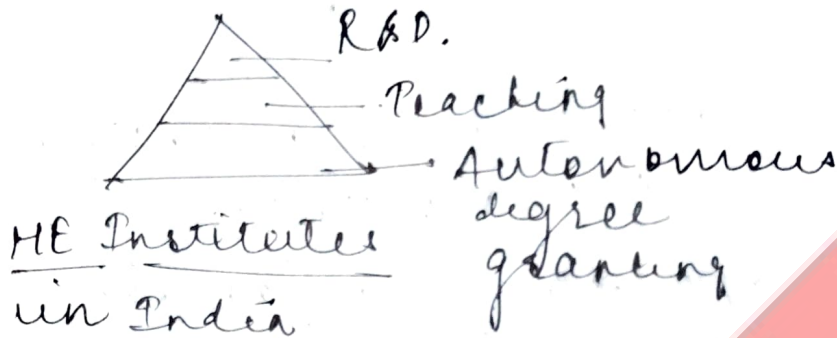 R&D.
Teaching
Autonomous
degree
granting
HE Institutes
in India